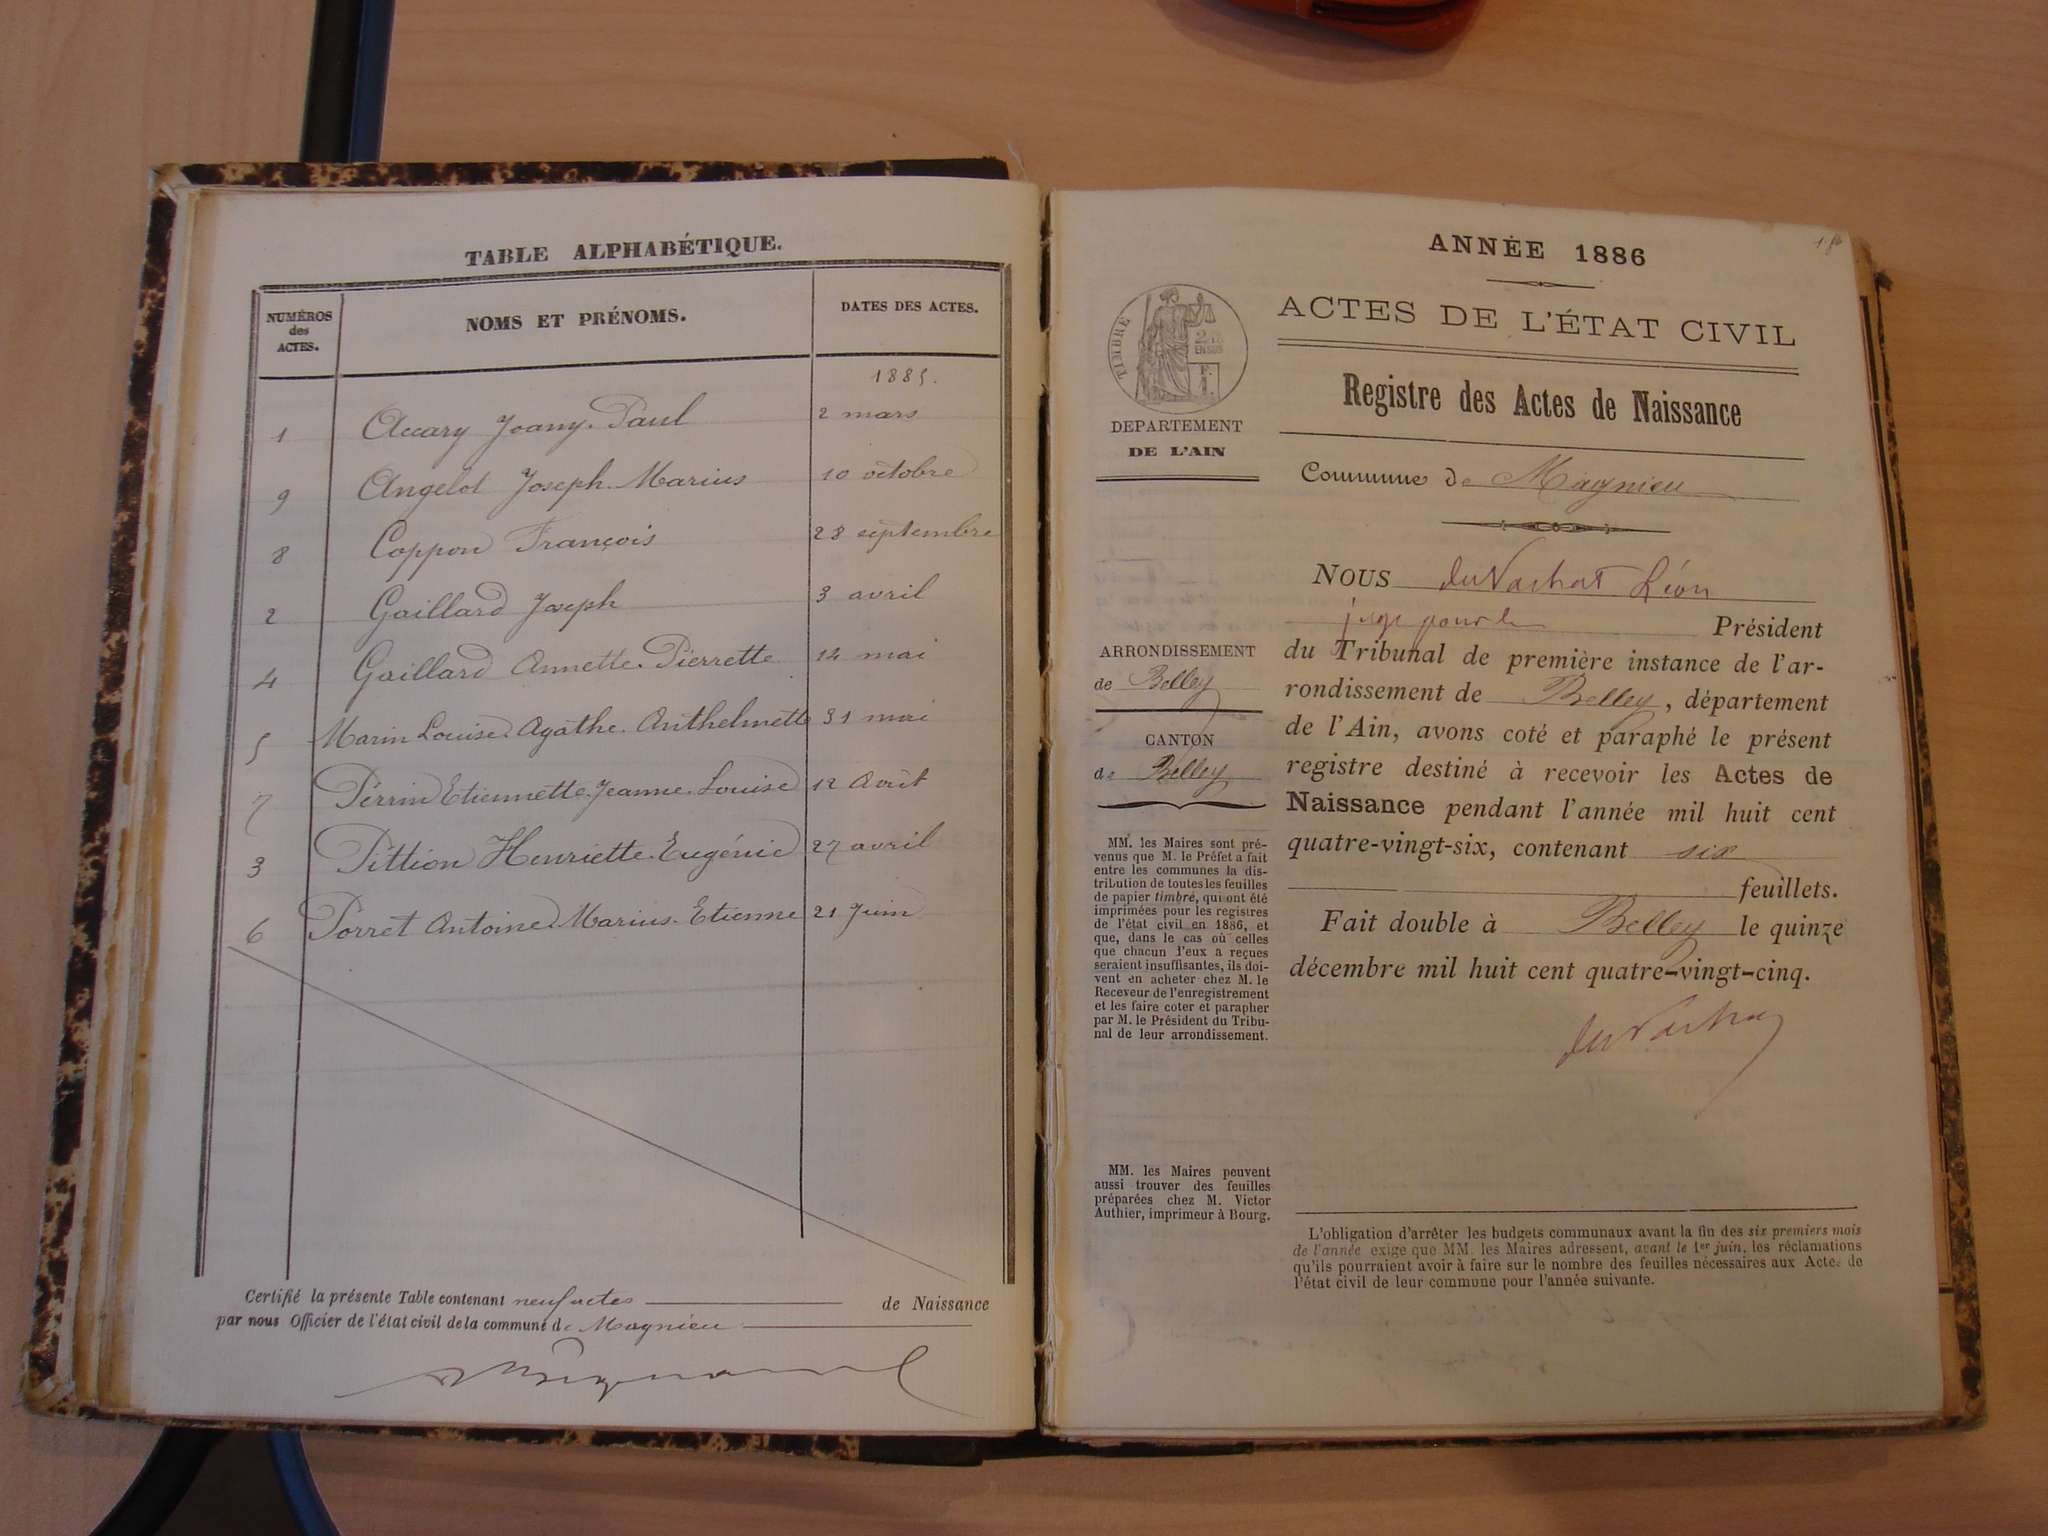 TABLE ALPHABÉTIQUE.
NUMÉROS
des
ACTES.
NOMS ET PRÉNOMS.
DATES DES ACTES.
1885.
1 Accary Joany Paul 2 mars
9 Angelot Joseph Marius 10 octobre
8 Coppon François 28 septembre
2 Gaillard Joseph 3 avril
4 Gaillard Annette Pierrette 14 mai
5 Marin Louise Agathe Anthelmette 31 mai
7 Perrin Etiennette Jeanne Louise 12 Août
3 Pittion Henriette Eugénie 27 avril
6 Porret Antoine Marius Etienne 21 Juin
Certifié la présente Table contenant neuf actes de Naissance
par nous Officier de l'état civil de la commune de Magnieu
ANNÉE 1886
ACTES DE L'ÉTAT CIVIL
Registre des Actes de Naissance
Commune de Magnieu
TIMBRE
DEPARTEMENT
DE L'AIN
ARRONDISSEMENT
de Belley
CANTON
de Belley
MM. les Maires sont pré-
venus que M. le Préfet a fait
entre les communes la dis-
tribution de toutes les feuilles
de papier timbré, qui ont été
imprimées pour les registres
de l'état civil en 1886, et
que, dans le cas où celles
que chacun d'eux a reçues
seraient insuffisantes, ils doi-
vent en acheter chez M. le
Receveur de l'enregistrement
et les faire coter et parapher
par M. le Président du Tribu-
nal de leur arrondissement.
MM. les Maires peuvent
aussi trouver des feuilles
préparées chez M. Victor
Authier, imprimeur à Bourg.
NOUS du Vachat Léon
juge pour le Président
du Tribunal de première instance de l'ar-
rondissement de Belley, département
de l'Ain, avons coté et paraphé le présent
registre destiné à recevoir les Actes de
Naissance pendant l'année mil huit cent
quatre-vingt-six, contenant six
feuillets.
Fait double à Belley le quinze
décembre mil huit cent quatre-vingt-cinq.
du Vachat
L'obligation d'arrêter les budgets communaux avant la fin des six premiers mois
de l'année exige que MM. les Maires adressent, avant le 1er juin, les réclamations
qu'ils pourraient avoir à faire sur le nombre des feuilles nécessaires aux Actes de
l'état civil de leur commune pour l'année suivante.